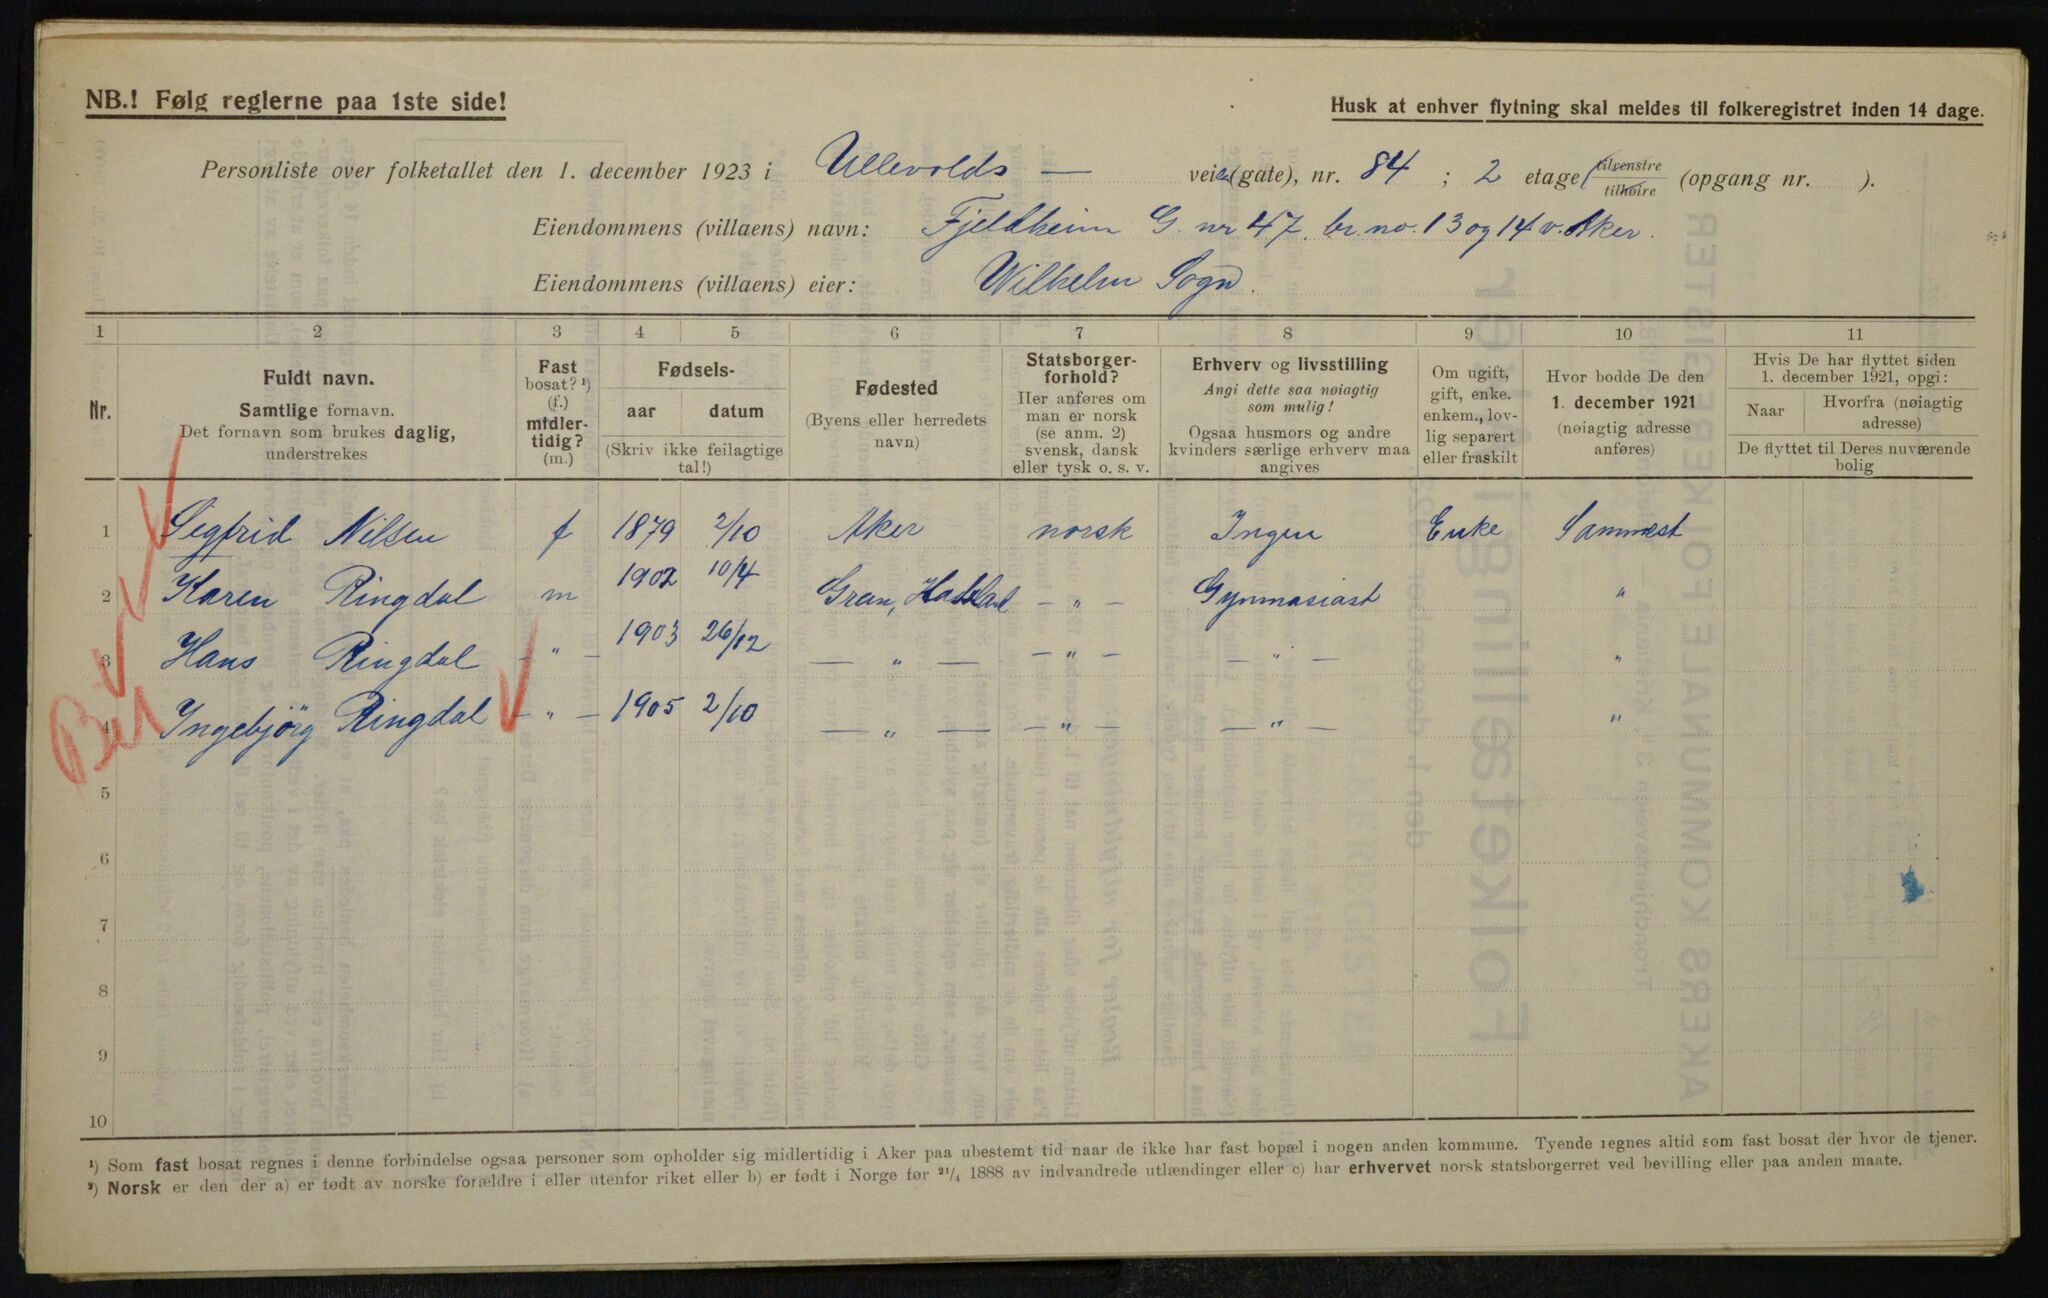 NB.! Følg reglerne paa 1ste side!
Husk at enhver flytning skal meldes til folkeregistret inden 14 dage.
Personliste over folketallet den 1. december 1923 i Ullevolds — veien (gate), nr. 84 ; 2 etage (tilvenstre tilhøire (opgang nr. ).
Eiendommens (villaens) navn: Fjeldheim G. nr 47. br. no. 13 og 14 v. Aker.
Eiendommens (villaens) eier: Wilhelm Sogn.
1 2 3 4 5 6 7 8 9 10 11
Nr.
Fuldt navn.
Samtlige fornavn.
Det fornavn som brukes daglig,
understrekes
Fast
bosat? ¹)
(f.)
midler-
tidig?
(m.)
Fødsels-
aar datum
(Skriv ikke feilagtige
tal!)
Fødested
(Byens eller herredets
navn)
Statsborger-
forhold?
Her anføres om
man er norsk
(se anm. 2)
svensk, dansk
eller tysk o. s. v.
Erhverv og livsstilling
Angi dette saa nøiagtig
som mulig!
Ogsaa husmors og andre
kvinders særlige erhverv maa
angives
Om ugift,
gift, enke.
enkem., lov-
lig separert
eller fraskilt
Hvor bodde De den
1. december 1921
(nøiagtig adresse
anføres)
Hvis De har flyttet siden
1. december 1921, opgi:
Naar Hvorfra (nøiagtig
adresse)
De flyttet til Deres nuværende
bolig
1 Segfrid Nilsen f 1879 2/10 Aker norsk Ingen Enke Sammest
2 Karen Ringdal m 1902 10/4 Gran, Hadeland — " — Gymnasiast "
3 Hans Ringdal — " — 1903 26/12 — " — — " — — " — "
4 Ingebjørg Ringdal — " — 1905 2/10 — " — — " — — " — "
5
6
7
8
9
10
¹) Som fast bosat regnes i denne forbindelse ogsaa personer som opholder sig midlertidig i Aker paa ubestemt tid naar de ikke har fast bopæl i nogen anden kommune. Tyende regnes altid som fast bosat der hvor de tjener.
²) Norsk er den der a) er født av norske forældre i eller utenfor riket eller b) er født i Norge før ²¹/₄ 1888 av indvandrede utlændinger eller c) har erhvervet norsk statsborgerret ved bevilling eller paa anden maate.